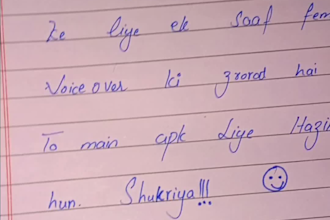 Ke liye ek saaf fem
Voice over ki zrorat hai
To main apk Liye Hazir
hun. Shukriya!!!